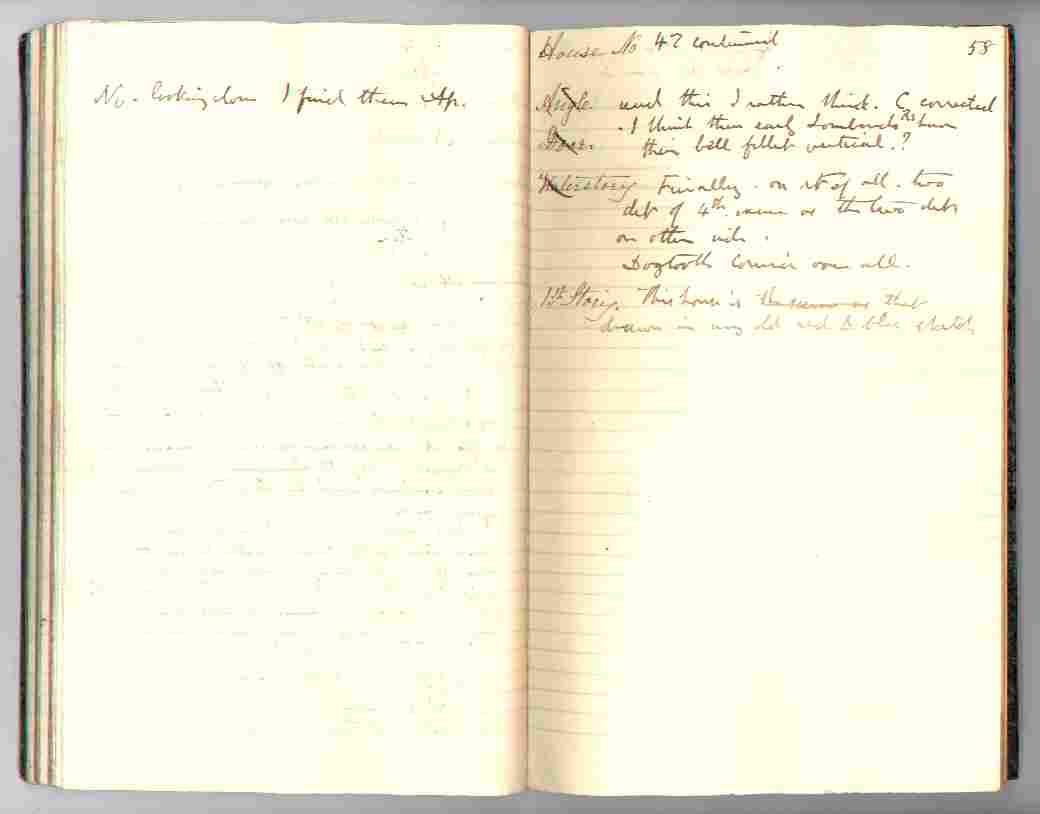 No. looking close I find them All.
House No 42 continued
58
Angle. and this I rather think. C corrected
. I think the early Lombards Rs have
Door. their ball fillet vertical.?
Waterstory Finally. on rt of all. two
dets of 4th same as the two dets
on other side.
Dogtooth Cornice over all.
1st Story. This house is the same as that
drawn in my old red & blue sketch